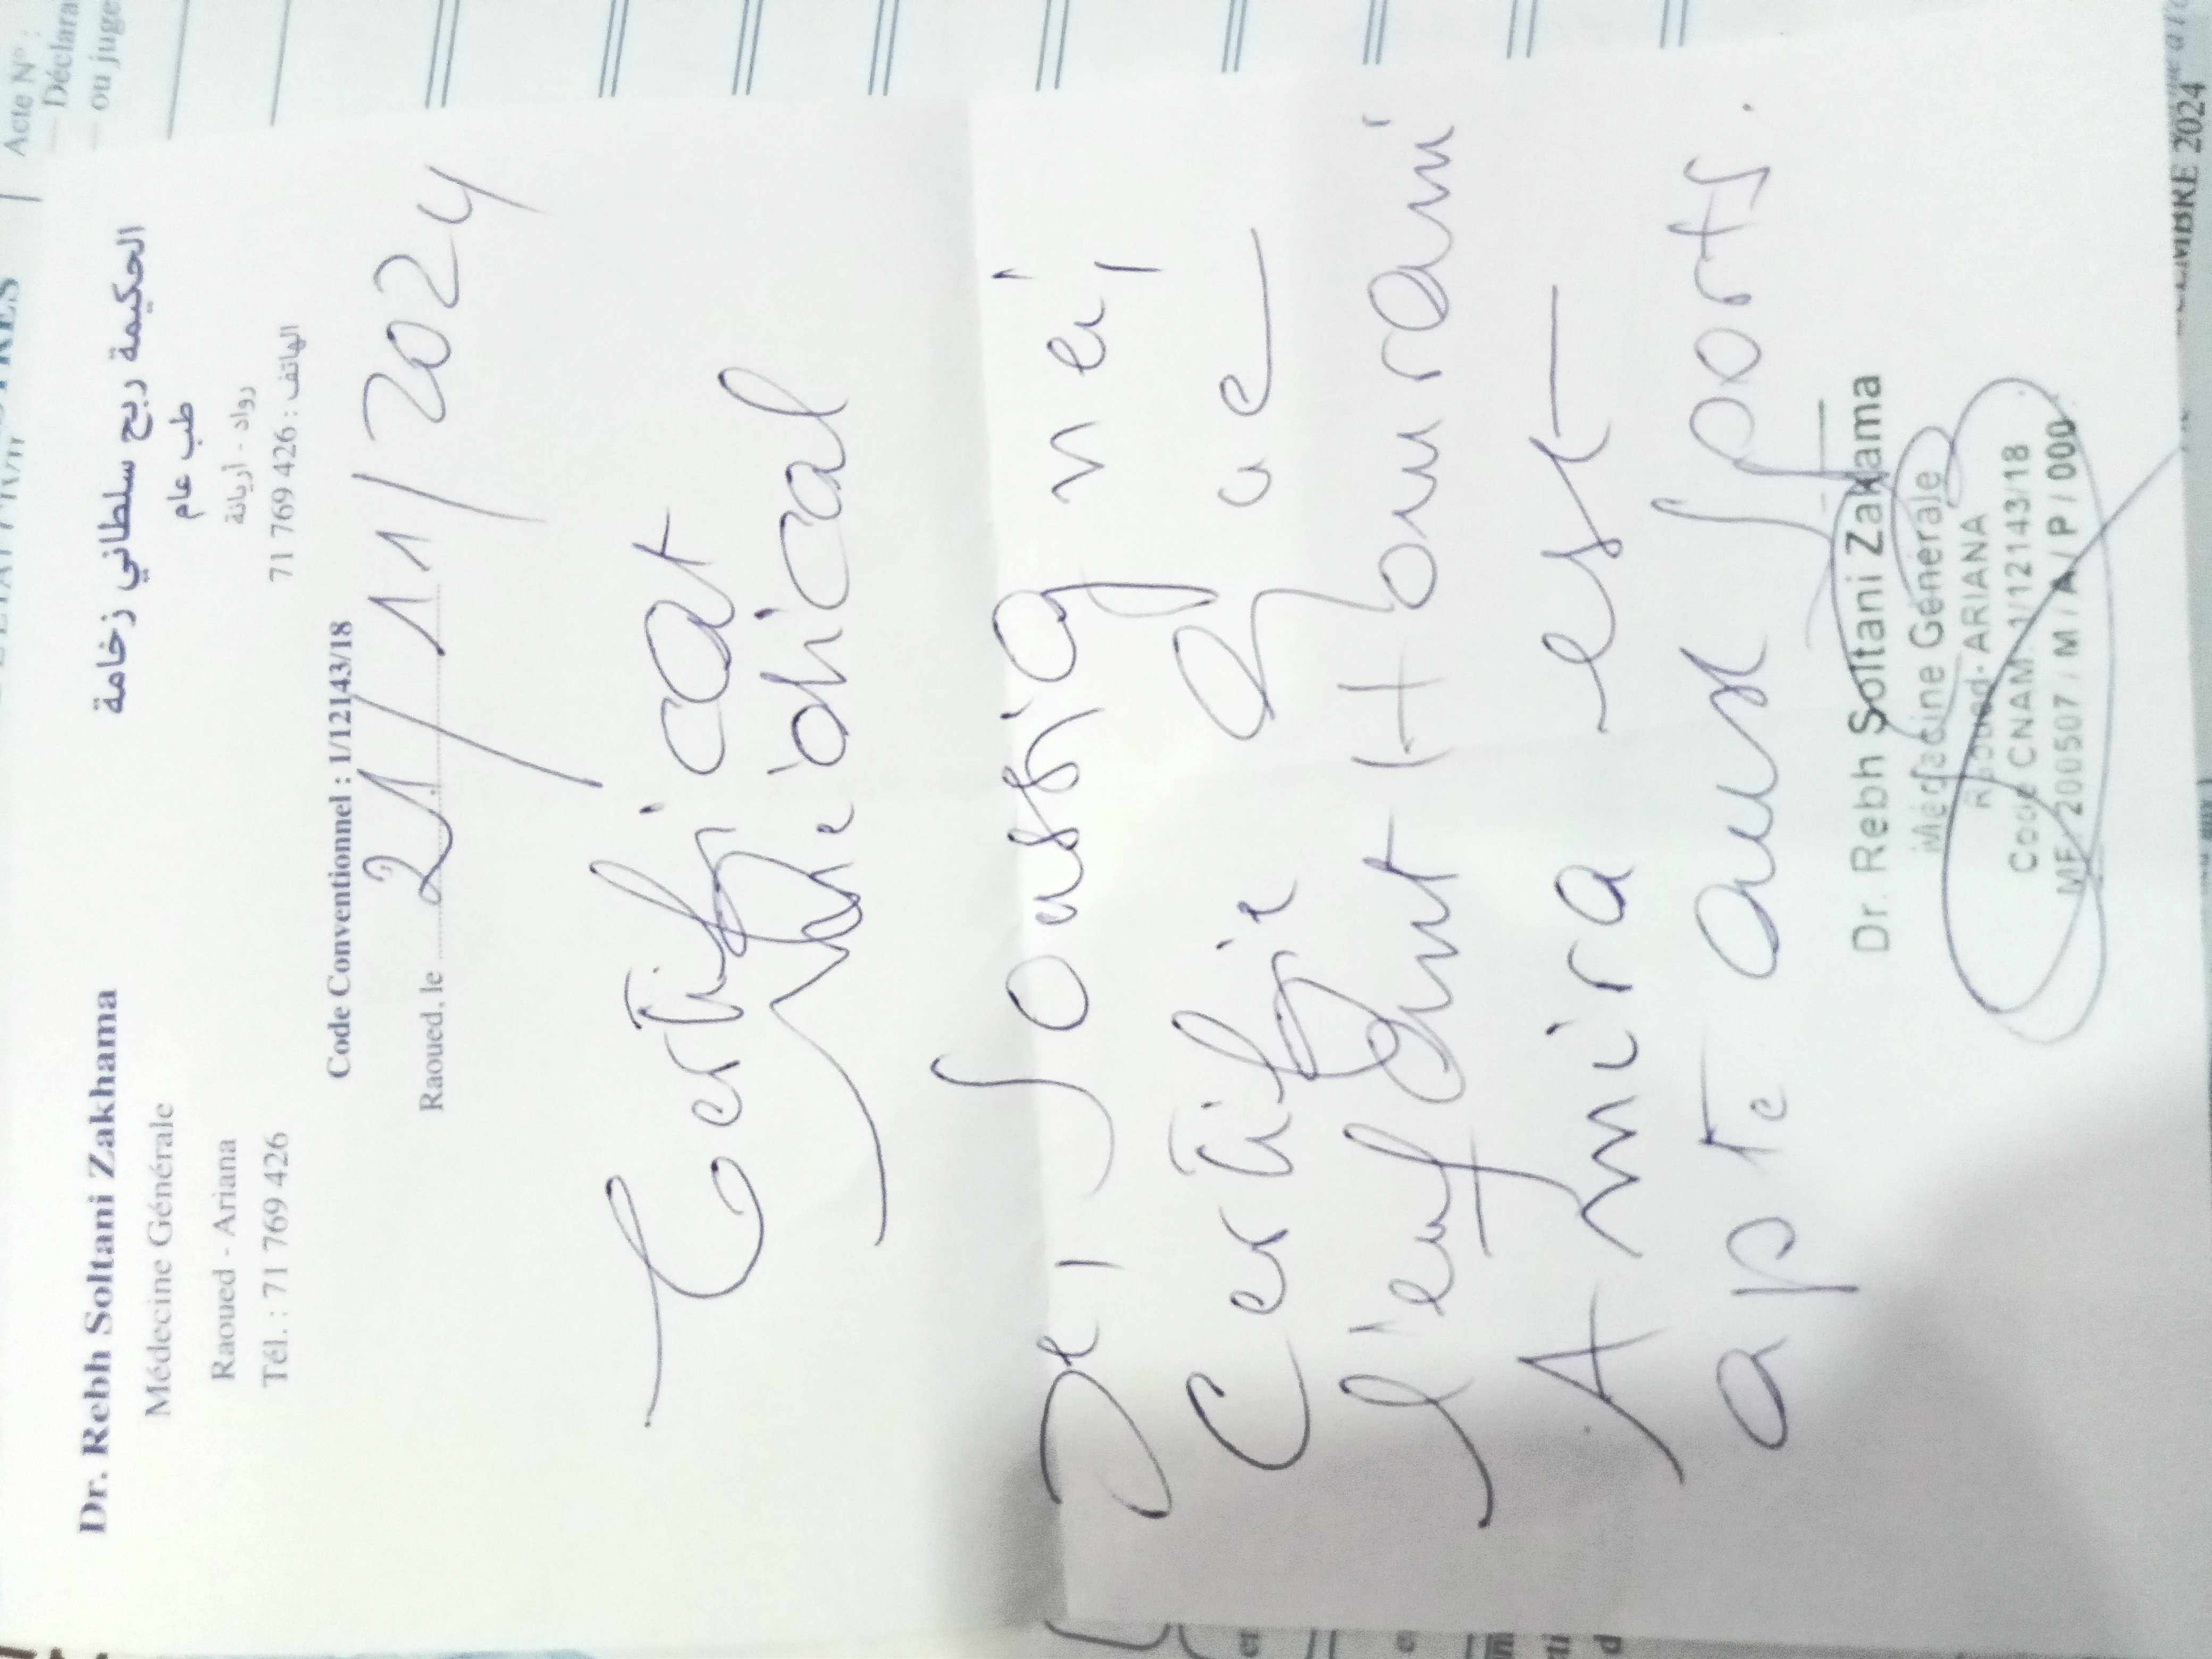 Dr. Rebh Soltani Zakhama
Médecine Générale
Raoued - Ariana
Tél. : 71 769 426
الحكيمة ربح سلطاني زخامة
طب عام
رواد - أريانة
الهاتف : 426 769 71
Code Conventionnel : 1/12143/18
Raoued, le 21/11/2024
Certificat
Médical
Je, soussigné,
Certifie que
l'enfant Hourani
Amira est
apte aux sports.
Dr. Rebh Soltani Zakama
Médecine Générale
Raoued - ARIANA
Code CNAM: 1/12143/18
MF: 200507 / M / A / P / 000
Acte N° :
Déclara
ou juge
EMBRE 2024